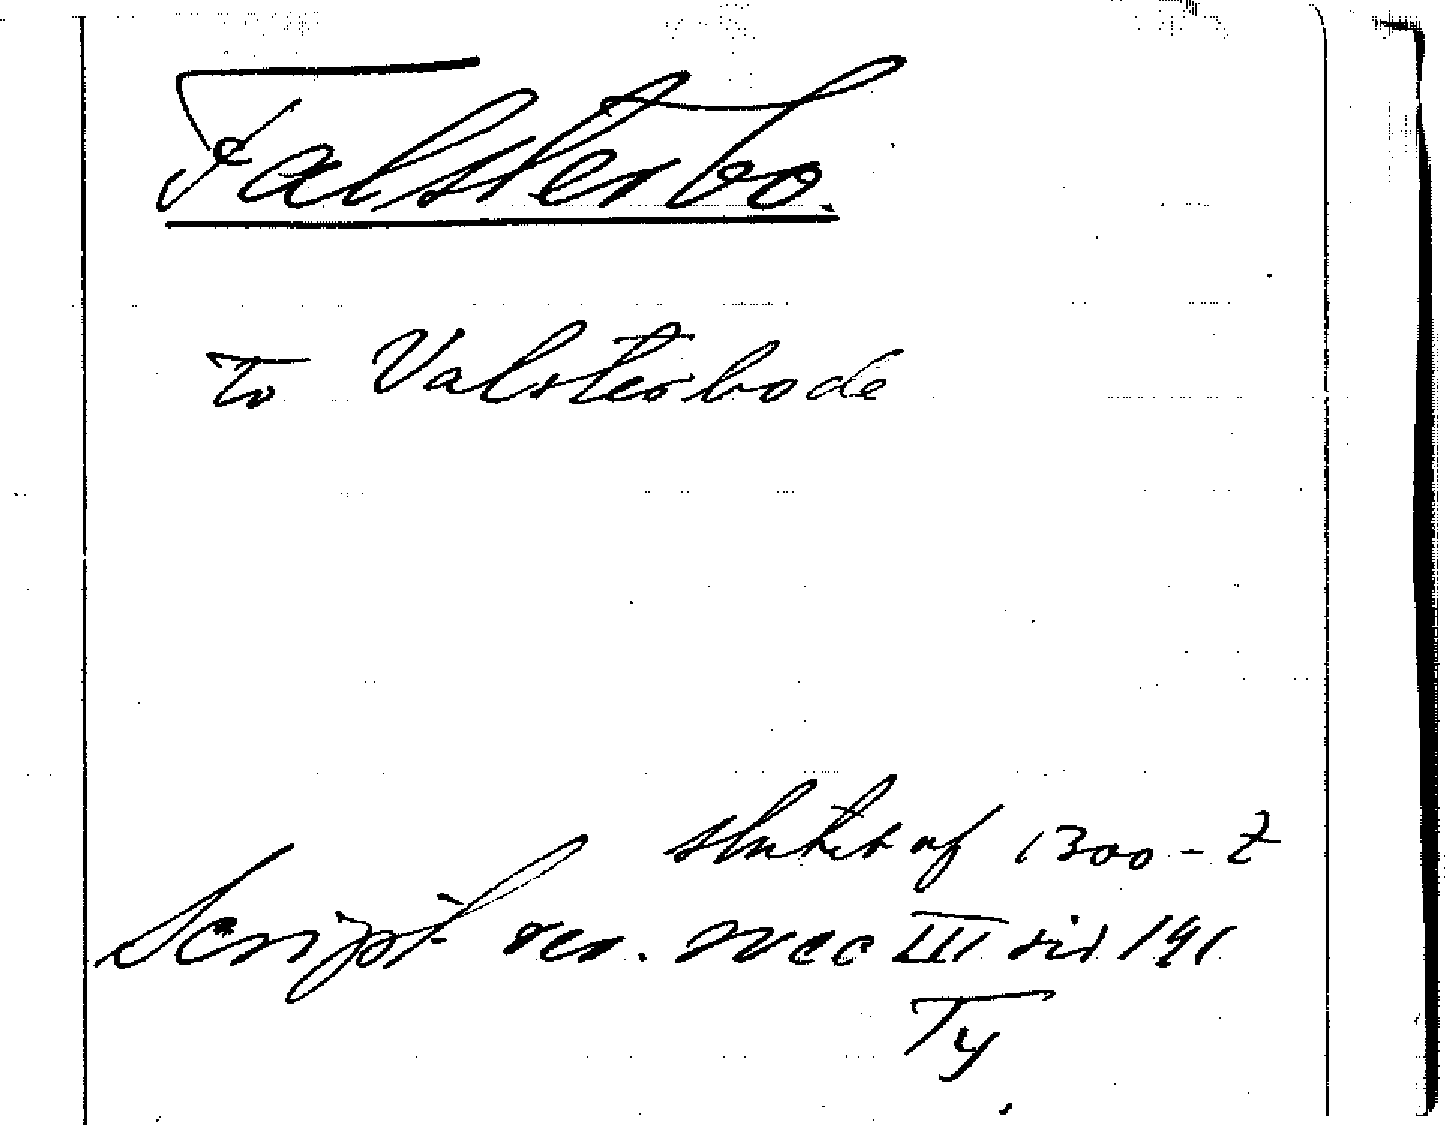 Falsterbo.
to Valsterbode
slutet af 1300-t
Script rer. svec III sid 191
Ty